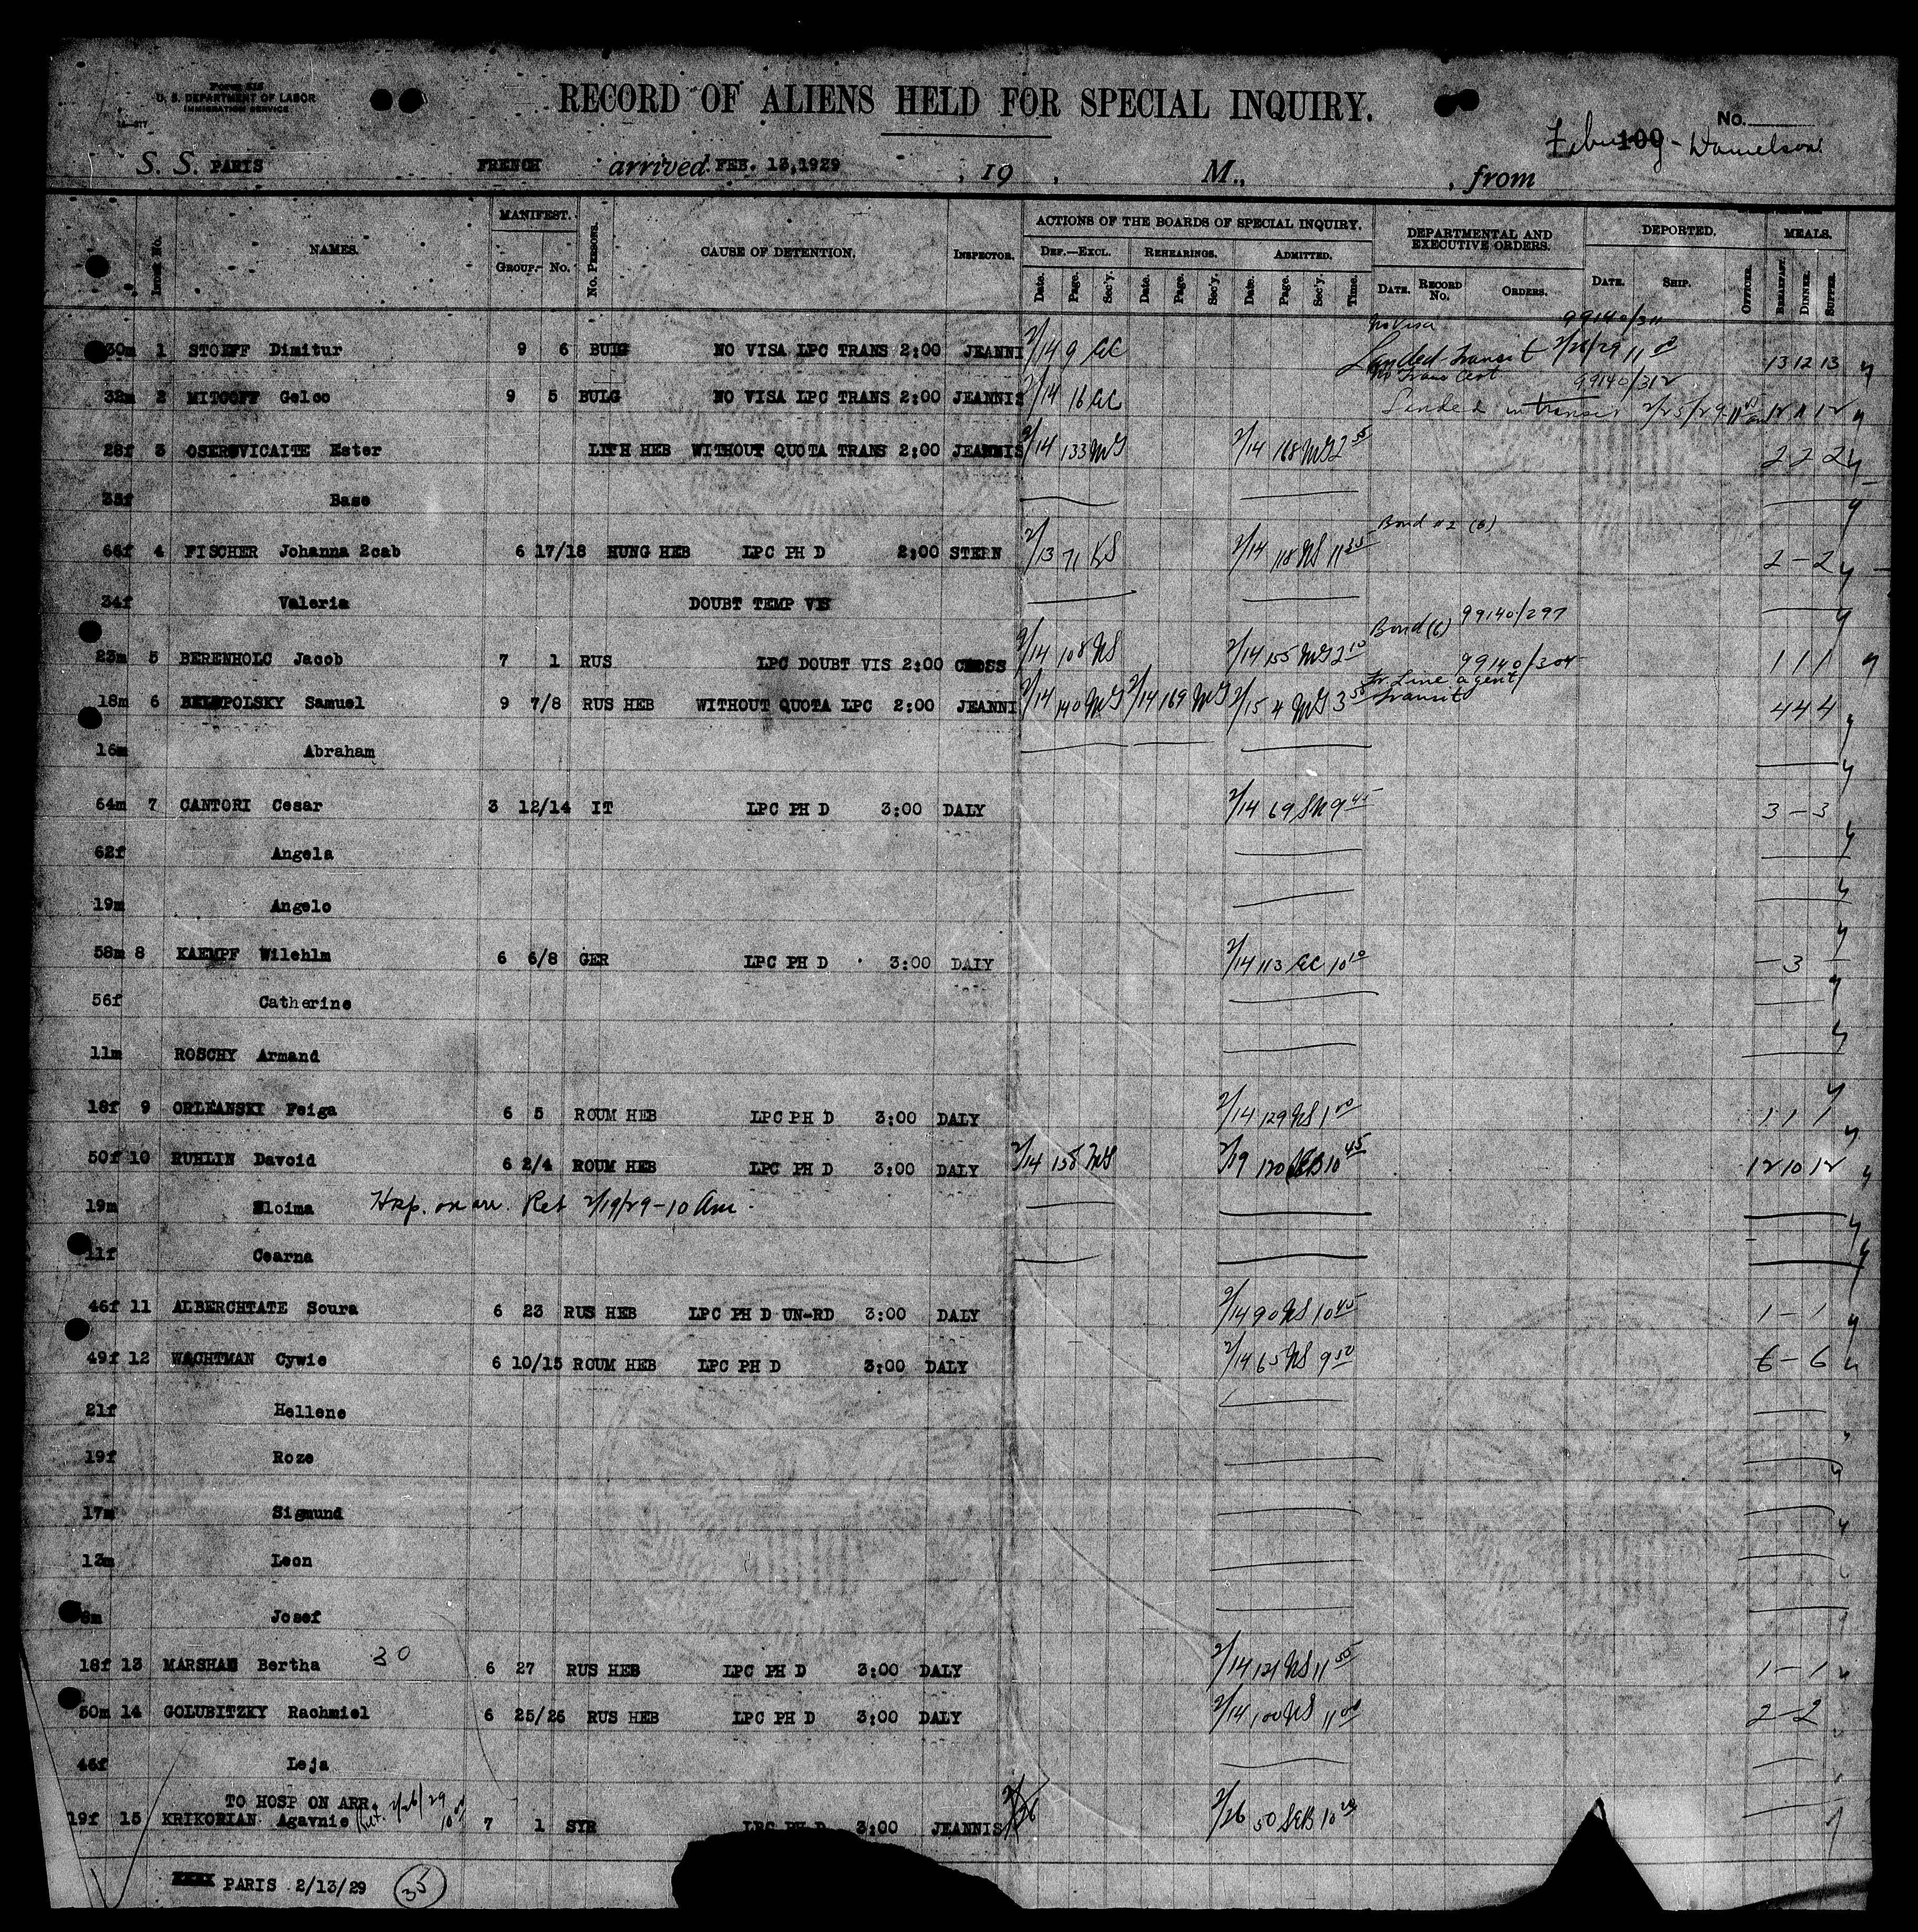 Form 518
U. S. DEPARTMENT OF LABOR
IMMIGRATION SERVICE
RECORD OF ALIENS HELD FOR SPECIAL INQUIRY.
No.
109
S. S. PARIS FRENCH arrived FEB. 13,1929 , 19 , M., , from
NAMES. MANIFEST. GROUP. No. No. PERSONS. CAUSE OF DETENTION. INSPECTOR. ACTIONS OF THE BOARDS OF SPECIAL INQUIRY. DEPARTMENTAL AND EXECUTIVE ORDERS. DEPORTED. MEALS.
DEF.—EXCL. REHEARINGS. ADMITTED.
Date. Page. Sec'y. Date. Page. Sec'y. Date. Page. Sec'y. Time. DATE. RECORD No. ORDERS. DATE. SHIP. OFFICER. BREAKFAST. DINNER. SUPPER.
No Visa 99140/311
30m 1 STOEFF Dimitur 9 6 BULG NO VISA LPC TRANS 2:00 JEANNI 2/14 9 Landed transit 13 12 13
No Trans Cert 99140/312
32m 2 MITCOFF Gelco 9 5 BULG NO VISA LPC TRANS 2:00 JEANNIS 2/14 16 Landed in transit 2/25/29 12 11 12
28f 3 OSEROVICAITE Ester LITH HEB WITHOUT QUOTA TRANS 2:00 JEANNIS 2/14 133 MG 2/14 168 MG 2 55 2 2 2
35f Base
Bond
66f 4 FISCHER Johanna Zcab 6 17/18 HUNG HEB LPC PH D 2:00 STERN 2/13 71 KS 2/14 118 NS 11 35 2 - 2
34f Valeria DOUBT TEMP VIS
Bond (6) 99140/297
23m 5 BERENHOLC Jacob 7 1 RUS LPC DOUBT VIS 2:00 CROSS 2/14 108 NS 2/14 155 MG 2 10 1 1 1
99140/304
Fr. Line agent
18m 6 BELOPOLSKY Samuel 9 7/8 RUS HEB WITHOUT QUOTA LPC 2:00 JEANNI 2/14 140 MG 2/14 169 MG 2/15 4 MG 3 50 transit 4 4 4
16m Abraham
64m 7 CANTORI Cesar 3 12/14 IT LPC PH D 3:00 DALY 2/14 69 9 45 3 - 3
62f Angela
19m Angelo
58m 8 KAEMPF Wilehlm 6 6/8 GER LPC PH D 3:00 DALY 2/14 113 10 10 - 3 -
56f Catherine
11m ROSCHY Armand
18f 9 ORLEANSKI Feiga 6 5 ROUM HEB LPC PH D 3:00 DALY 2/14 129 NS 1 00 1 1 1
50f 10 RUHLIN Davoid 6 2/4 ROUM HEB LPC PH D 3:00 DALY 2/14 158 NS 2/19 120 SEB 10 45 12 10 12
19m Sloima Hosp. on arr. Ret 2/19/29 - 10 Am.
11f Cearna
46f 11 ALBERCHTATE Soura 6 23 RUS HEB LPC PH D UN-RD 3:00 DALY 2/14 90 NS 10 45 1 - 1
49f 12 WACHTMAN Cywie 6 10/15 ROUM HEB LPC PH D 3:00 DALY 2/14 65 NS 9 50 6 - 6
21f Hellene
19f Roze
17m Sigmund
13m Leon
8m Josef
18f 13 MARSHAN Bertha 30 6 27 RUS HEB LPC PH D 3:00 DALY 2/14 121 NS 11 55 1 - 1
50m 14 GOLUBITZKY Rachmiel 6 25/26 RUS HEB LPC PH D 3:00 DALY 2/14 100 NS 11 00 2 - 2
46f Leja
TO HOSP ON ARR.
19f 15 KRIKORIAN Agavnie Ret. 2/26/29 7 1 SYR LPC PH D 3:00 JEANNIS 2/26 2/26 50 SEB 10 20
PARIS 2/13/29 35